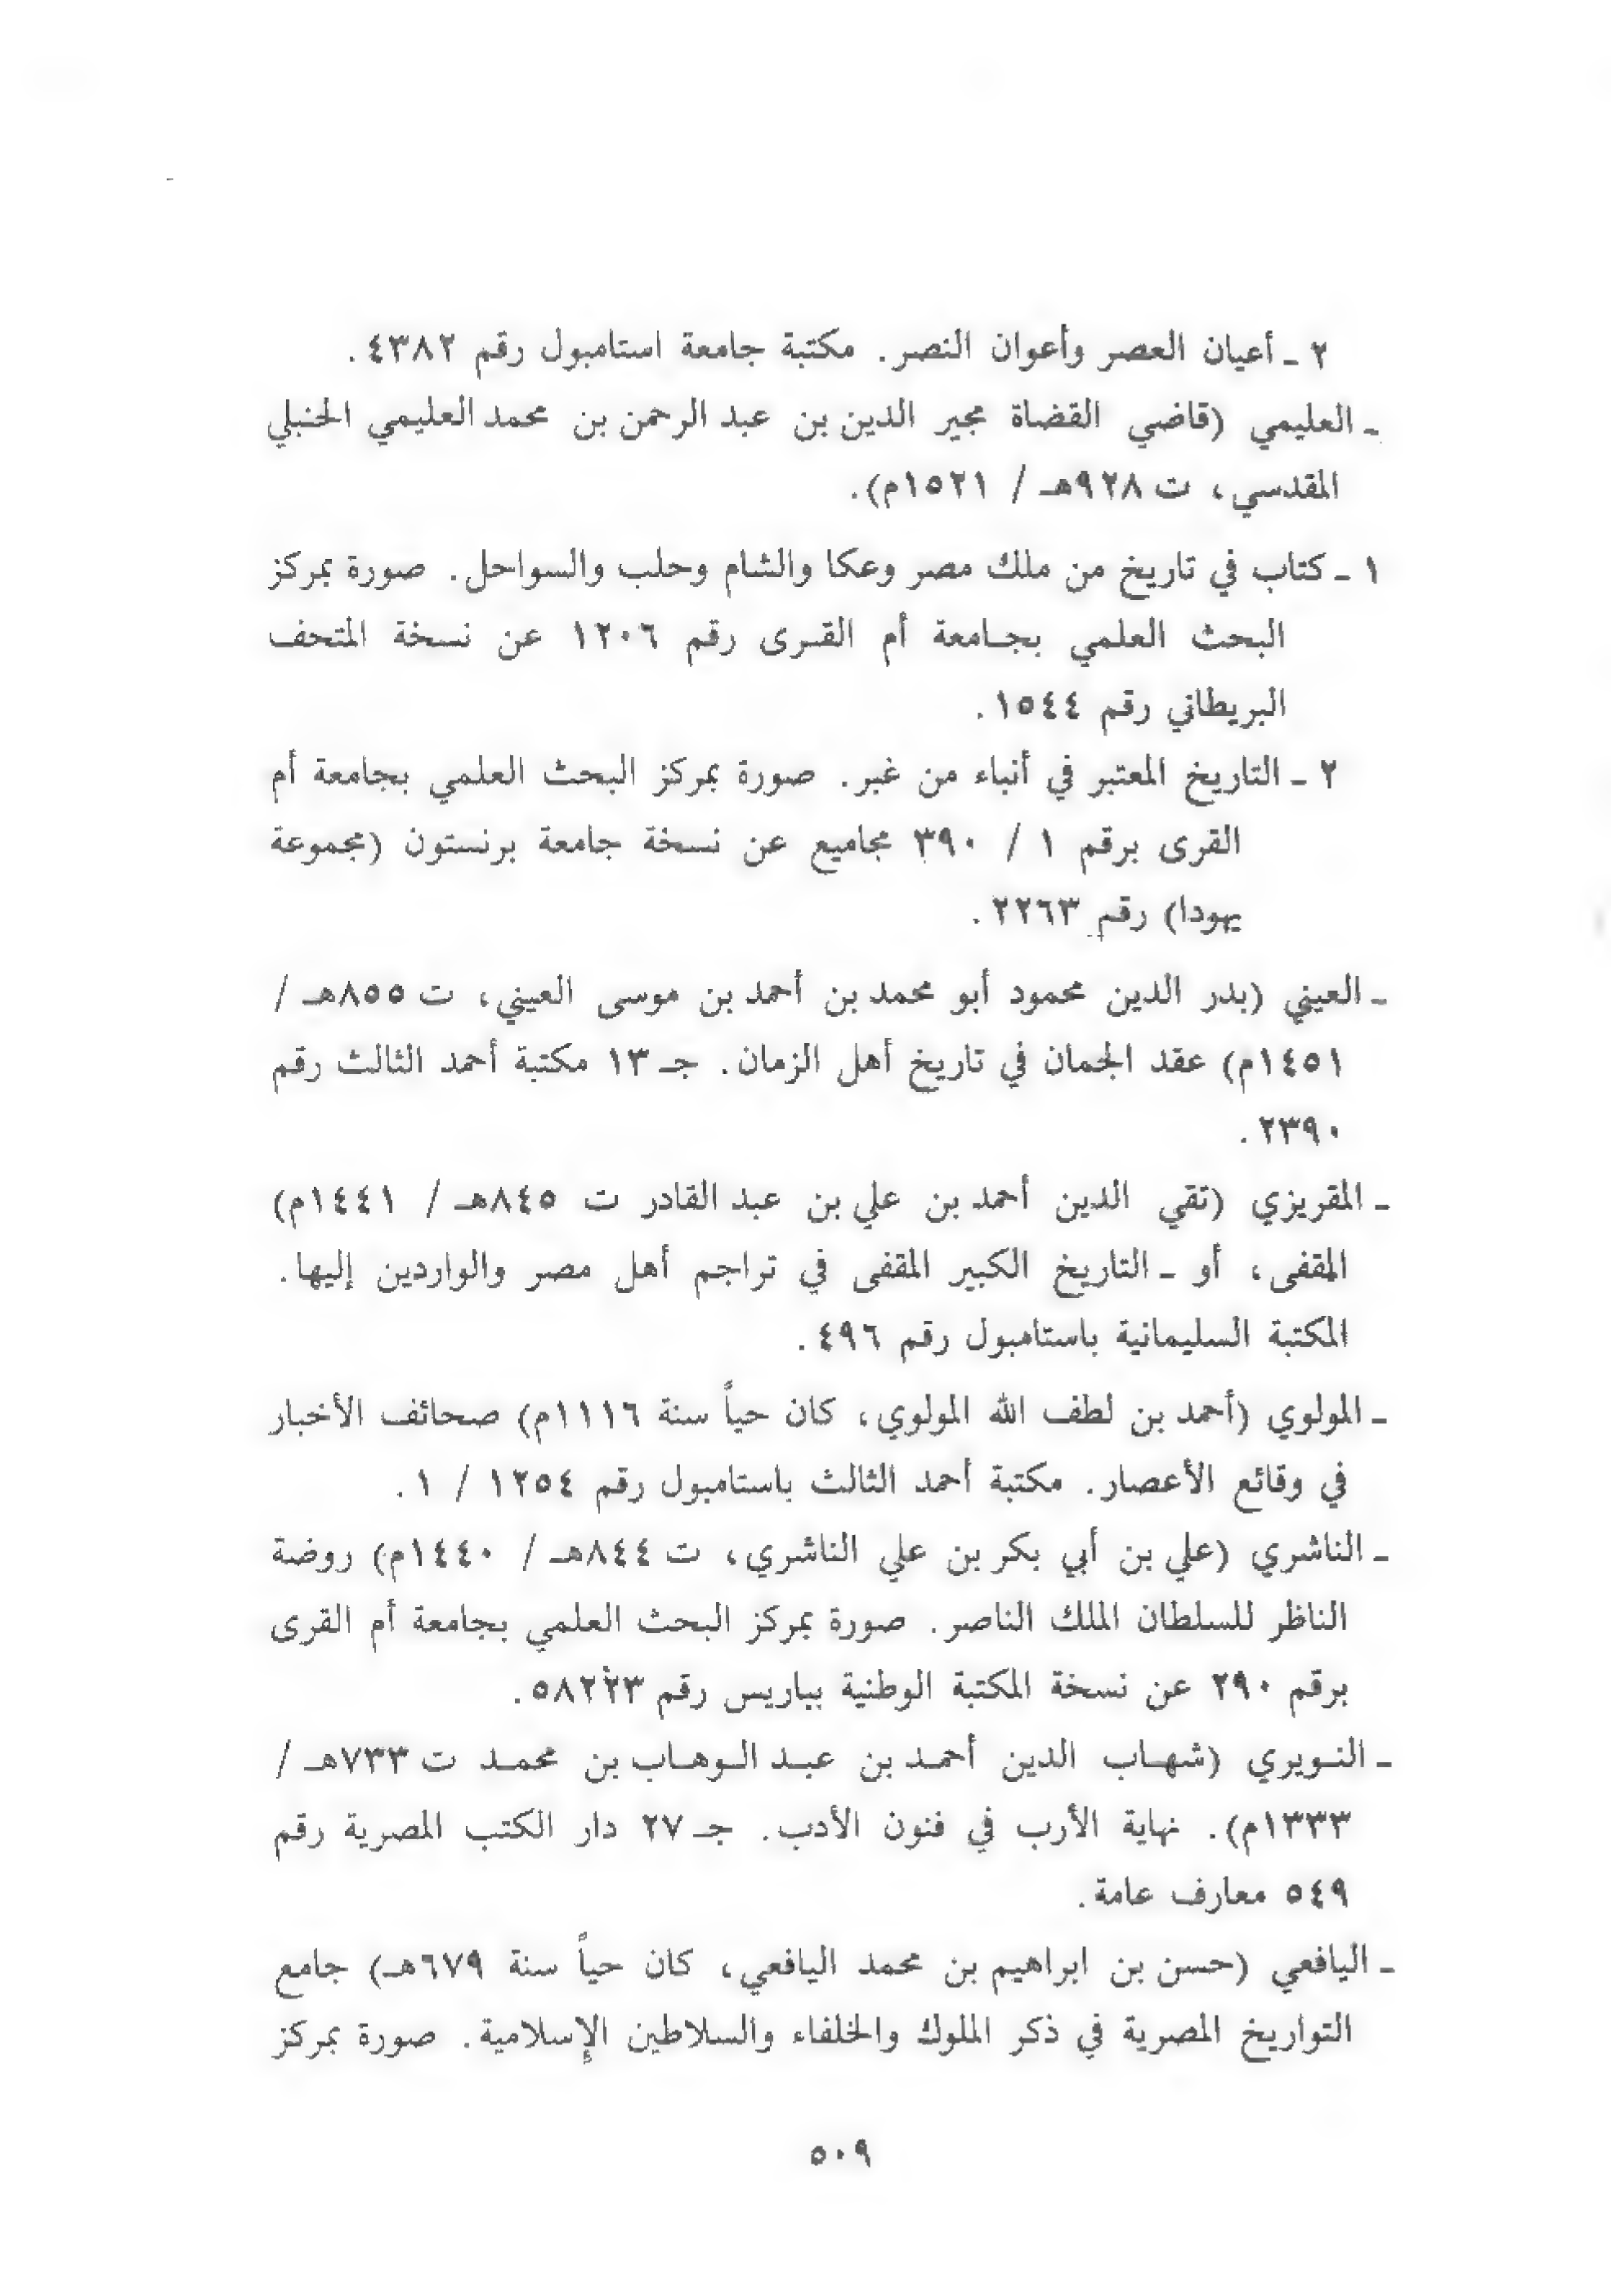 ٢ ـ أعيان العصر وأعوان النصر. مكتبة جامعة استامبول رقم ٤٣٨٢.
ـ العليمي (قاضي القضاة مجير الدين بن عبد الرحمن بن محمد العليمي الحنبلي
المقدسي، ت ٩٢٨هـ / ١٥٢١م).
١ ـ كتاب في تاريخ من ملك مصر وعكا والشام وحلب والسواحل. صورة بمركز
البحث العلمي بجـامعة أم القـرى رقم ١٢٠٦ عن نسخة المتحف
البريطاني رقم ١٥٤٤.
٢ ـ التاريخ المعتبر في أنباء من غبر. صورة بمركز البحث العلمي بجامعة أم
القرى برقم ١ / ٣٩٠ مجاميع عن نسخة جامعة برنستون (مجموعة
يهودا) رقم ٢٢٦٣.
ـ العيني (بدر الدين محمود أبو محمد بن أحمد بن موسى العيني، ت ٨٥٥هـ /
١٤٥١م) عقد الجمان في تاريخ أهل الزمان. جـ ١٣ مكتبة أحمد الثالث رقم
٢٣٩٠.
ـ المقريزي (تقي الدين أحمد بن علي بن عبد القادر ت ٨٤٥هـ / ١٤٤١م)
المقفى، أو ـ التاريخ الكبير المقفى في تراجم أهل مصر والواردين إليها.
المكتبة السليمانية باستامبول رقم ٤٩٦.
ـ المولوي (أحمد بن لطف الله المولوي، كان حياً سنة ١١١٦م) صحائف الأخبار
في وقائع الأعصار. مكتبة أحمد الثالث باستامبول رقم ١٢٥٤ / ١.
ـ الناشري (علي بن أبي بكر بن علي الناشري، ت ٨٤٤هـ / ١٤٤٠م) روضة
الناظر للسلطان الملك الناصر. صورة بمركز البحث العلمي بجامعة أم القرى
برقم ٢٩٠ عن نسخة المكتبة الوطنية بباريس رقم ٥٨٢٢٣.
ـ النـويري (شهـاب الدين أحمـد بن عبـد الـوهـاب بن محمـد ت ٧٣٣هـ /
١٣٣٣م). نهاية الأرب في فنون الأدب. جـ ٢٧ دار الكتب المصرية رقم
٥٤٩ معارف عامة.
ـ اليافعي (حسن بن ابراهيم بن محمد اليافعي، كان حياً سنة ٦٧٩هـ) جامع
التواريخ المصرية في ذكر الملوك والخلفاء والسلاطين الإسلامية. صورة بمركز
٥٠٩